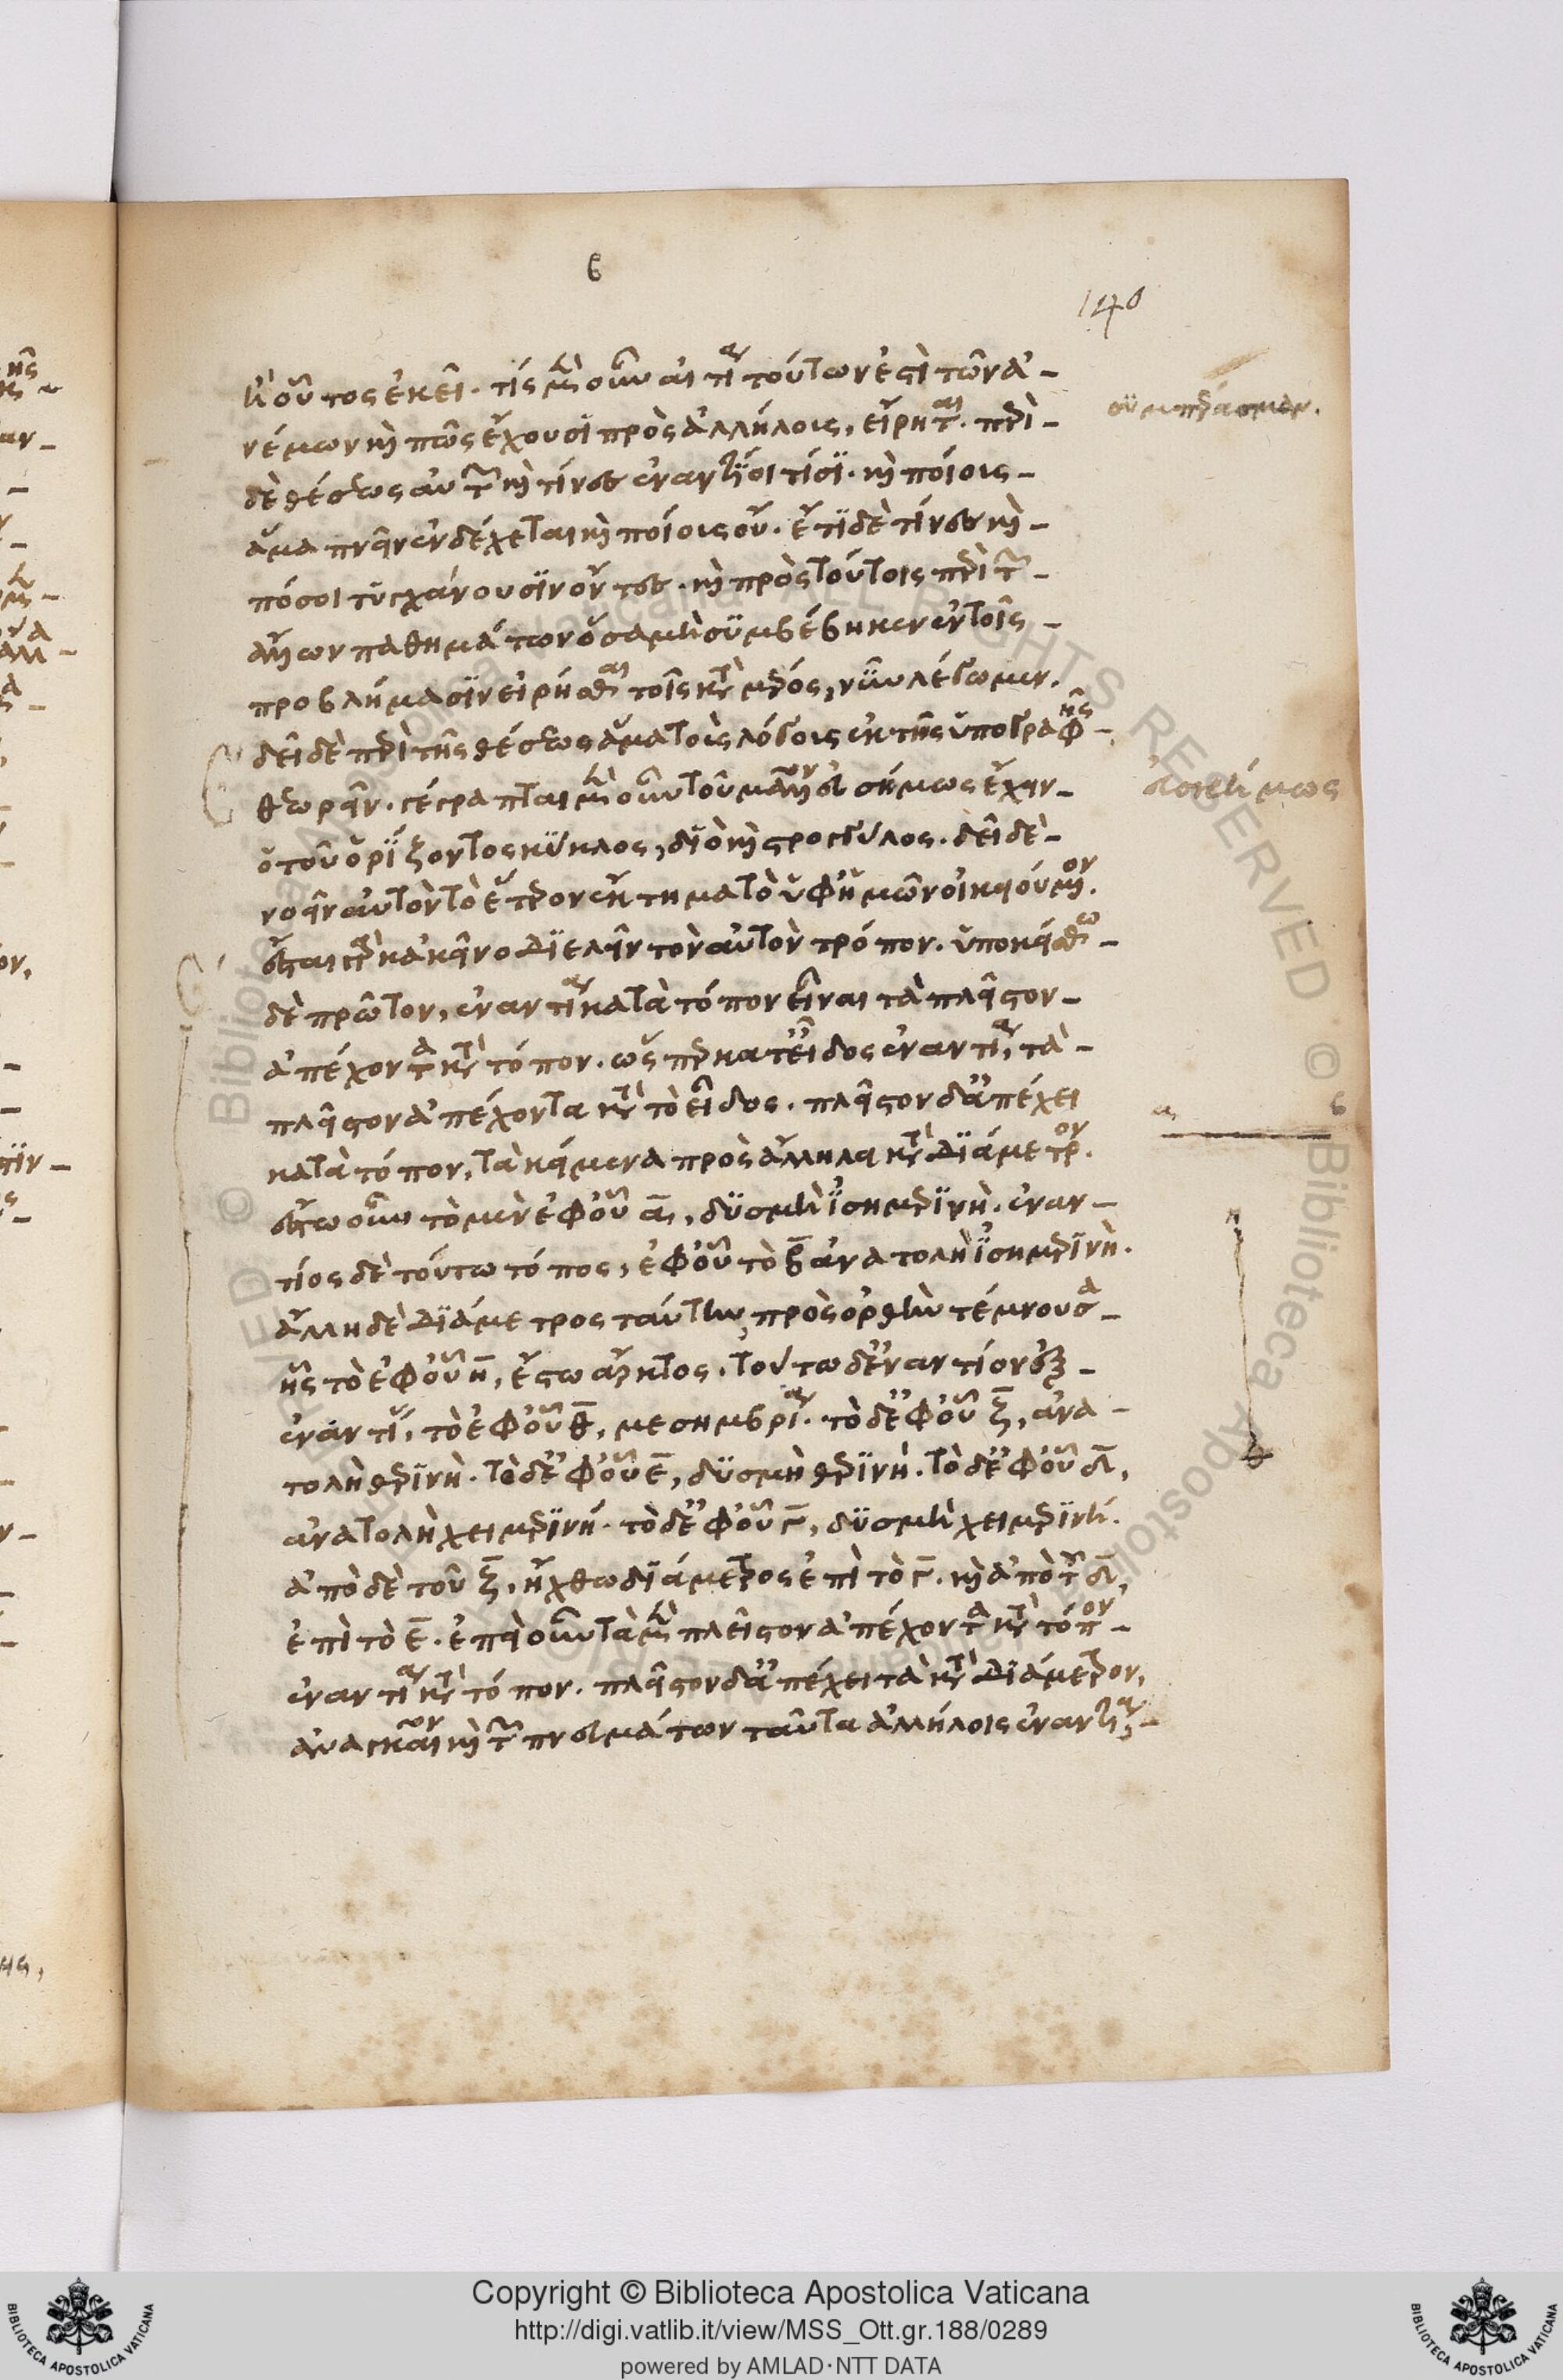 β
140
ἢ οὗτος ἐκεῖ. τίς μὲν οὖν αἰτία τούτων ἐστὶ τῶν ἀ-
νέμων καὶ πῶς ἔχουσι πρὸς ἀλλήλοις, εἴρηται. περὶ
δὲ θέσεως αὐτῶν καὶ τίνες ἐναντίοι τίσι. καὶ ποίοις
ἅμα πνεῖν ἐνδέχεται καὶ ποίοις οὔ. ἔτι δὲ τίνες καὶ
πόσοι τυγχάνουσιν ὄντες. καὶ πρὸς τούτοις περὶ τῶν
ἄλλων παθημάτων ὅσα μὴ συμβέβηκεν ἐν τοῖς
προβλήμασιν εἰρῆσθαι τοῖς κατὰ μέρος, νῦν λέγωμεν.
δεῖ δὲ περὶ τῆς θέσεως ἅμα τοὺς λόγοις ἐκ τῆς ὑπογραφῆς
θεωρεῖν. γέγραπται μὲν οὖν τοῦ μᾶλλον εὐσήμως ἔχειν
ὁ τοῦ ὁρίζοντος κύκλος, διὸ καὶ στρογγύλος. δεῖ δὲ
νοεῖν αὐτὸν τὸ ἕτερον ἔκτημα τὸ ὑφ' ἡμῶν οἰκούμενον.
ἔσται γὰρ κἀκεῖνο διελεῖν τὸν αὐτὸν τρόπον. ὑποκείσθω
δὲ πρῶτον, ἐναντία κατὰ τόπον εἶναι τὰ πλεῖστον
ἀπέχοντα κατὰ τόπον. ὥσπερ κατ' εἶδος ἐναντία, τὰ
πλεῖστον ἀπέχοντα κατὰ τὸ εἶδος. πλεῖστον δ' ἀπέχει
κατὰ τόπον, τὰ κείμενα πρὸς ἄλληλα κατὰ διάμετρον.
ἔστω οὖν τὸ μὲν ἐφ' οὗ α, δυσμὴ ἰσημερινή. ἐναν-
τίος δὲ τούτω τόπος, ἐφ' οὗ τὸ β ἀνατολὴ ἰσημερινή.
ἄλλη δὲ διάμετρος ταύτην πρὸς ὀρθὴν τέμνουσα
ἧς τὸ ἐφ' οὗ η, ἔστω ἄρκτος. τούτω δ' ἐναντίον ἐξ
ἐναντίας, τὸ ἐφ' οὗ θ, μεσημβρία. τὸ δ' ἐφ' οὗ ζ, ἀνα-
τολὴ θερινή. τὸ δ' ἐφ' οὗ ε, δυσμὴ θερινή. τὸ δ' ἐφ' οὗ δ,
ἀνατολὴ χειμερινή. τὸ δ' ἐφ' οὗ γ, δυσμὴ χειμερινή.
ἀπὸ δὲ τοῦ ζ, ἤχθω διάμετρος ἐπὶ τὸ γ. καὶ ἀπὸ τοῦ δ,
ἐπὶ τὸ ε. ἐπεὶ οὖν τὰ μὲν πλεῖστον ἀπέχοντα κατὰ τόπον
ἐναντία κατὰ τόπον. πλεῖστον δ' ἀπέχει τὰ κατὰ διάμετρον,
ἀναγκαῖον καὶ τῶν πνευμάτων ταῦτα ἀλλήλοις ἐναντία
εὐσήμως
α β
η
θ